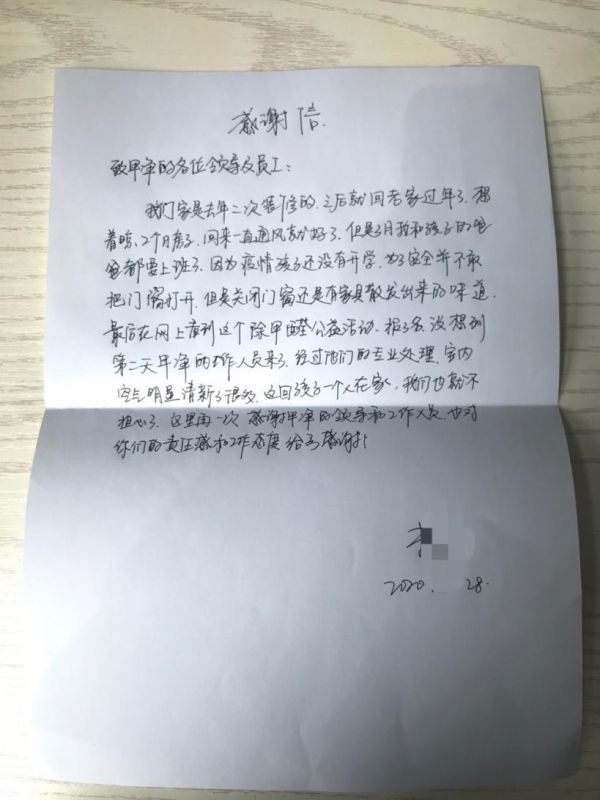 感谢信
致甲净的各位领导及员工：
我们家是去年二次装修的，之后就回老家过年了，想
着晾个2个月房子，回来一直通风就好了，但是3月我和孩子的爸
爸都要上班了，因为疫情孩子还没有开学，为了安全并不敢
把门窗打开，但是关闭门窗还是有家具散发出来的味道，
最后在网上看到这个除甲醛公益活动，报了名，没想到
第二天甲净的工作人员来了，经过他们的专业处理，室内
空气明显清新了很多，这回孩子一个人在家，我们也就不
担心了，这里再一次感谢甲净的领导和工作人员，也对
你们的责任感和工作态度给予感谢！
2020. 28.